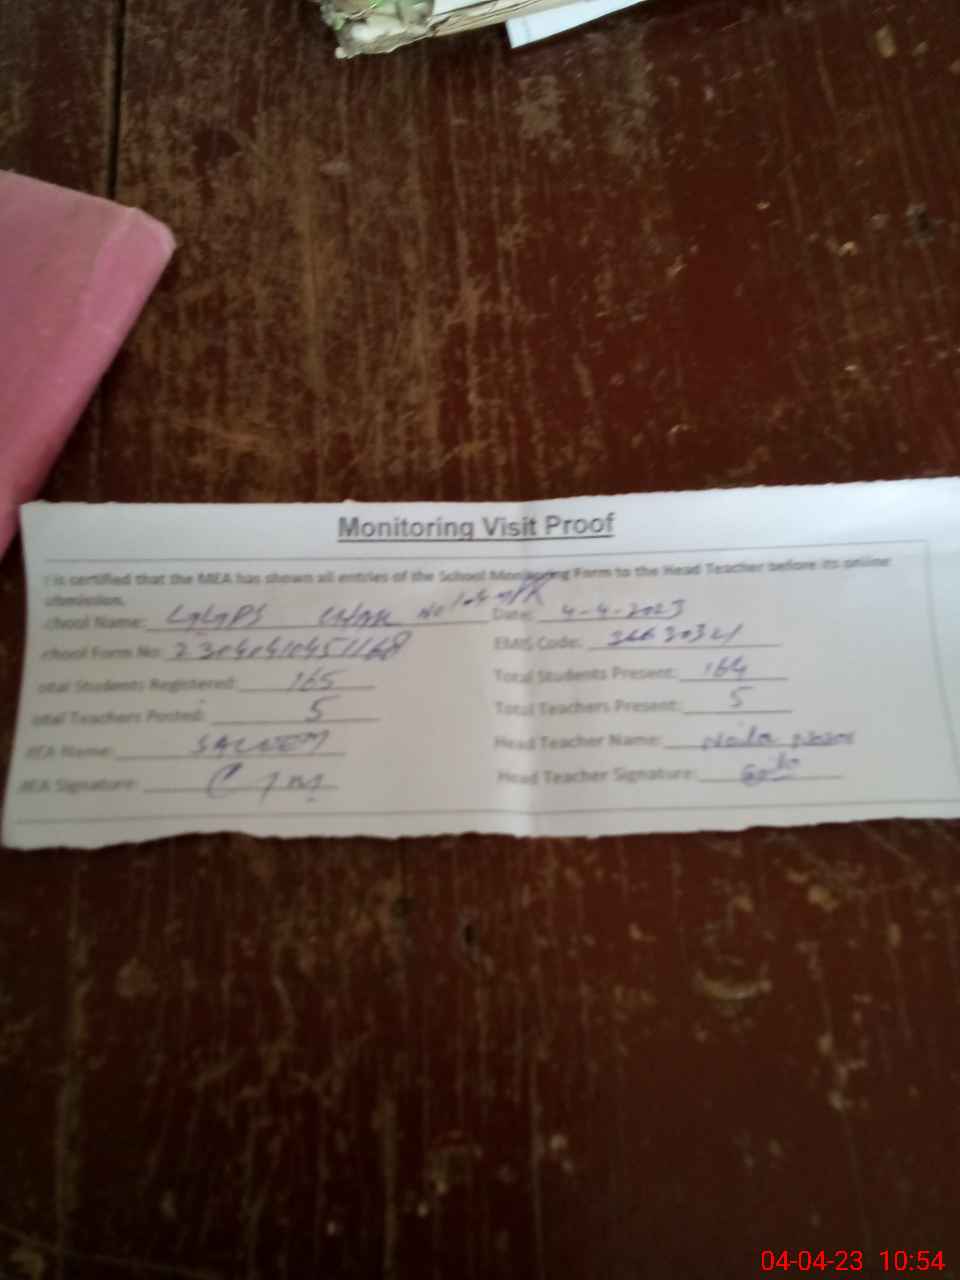 Monitoring Visit Proof
t is certified that the MEA has shown all entries of the School Monitoring Form to the Head Teacher before its online
ubmission.
chool Name: GGPS Chak No Date: 4-4-2023
chool Form No: EMIS Code:
otal Students Registered: 165 Total Students Present: 164
otal Teachers Posted: 5 Total Teachers Present: 5
MEA Name: SALEEM Head Teacher Name: Naila
MEA Signature: Head Teacher Signature:
04-04-23 10:54